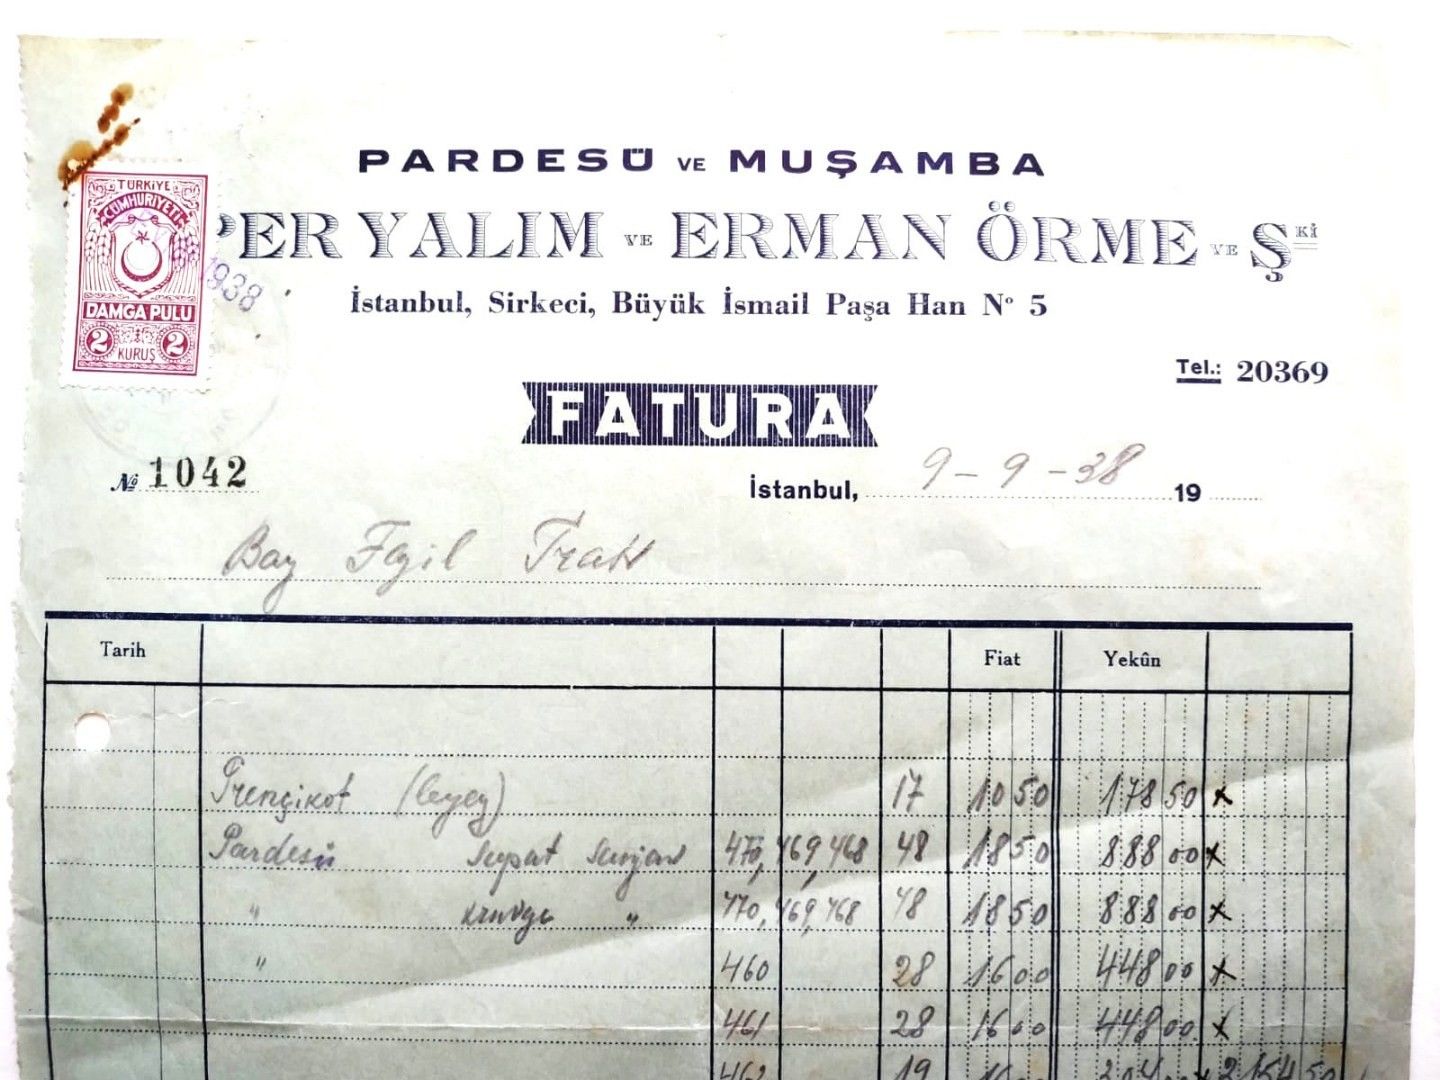 PARDESÜ VE MUŞAMBA
PER YALIM VE ERMAN ÖRME VE ŞKİ
İstanbul, Sirkeci, Büyük İsmail Paşa Han No 5
TÜRKİYE
CUMHURİYETİ
DAMGA PULU
2 KURUŞ 2
1938
Tel.: 20369
FATURA
No 1042
İstanbul, 9-9-38 19
Bay
Tarih Fiat Yekûn
Trençikot 17 10 50 178 50 x
Pardesü 470, 469, 468 48 18 50 888 00 x
" " 470, 469, 468 48 18 50 888 00 x
" 460 28 16 00 448 00 x
461 28 16 00 448 00 x
462 19 16 00 304 00 x 2154 50